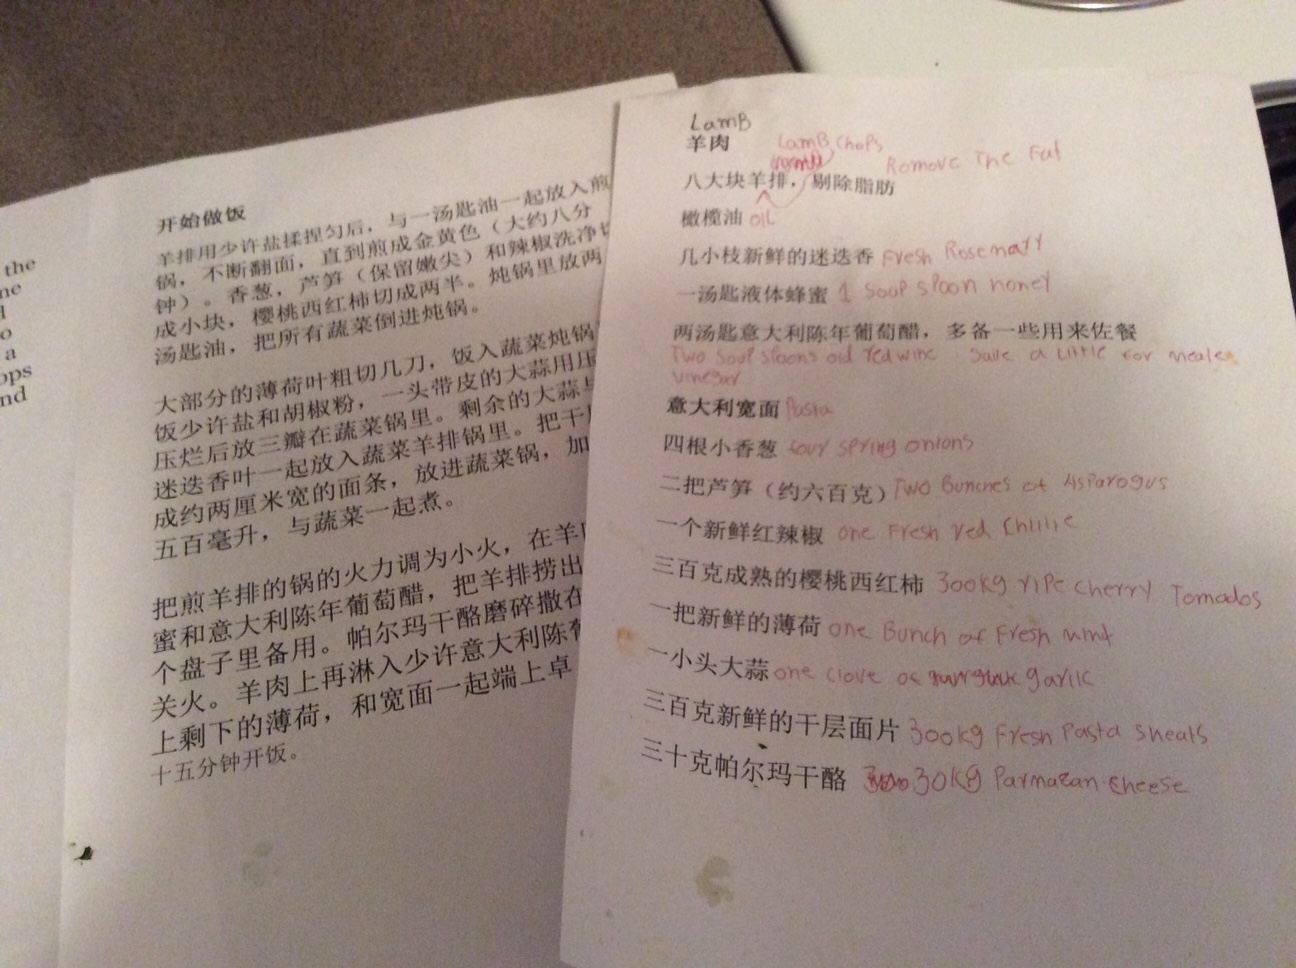 the
a
ops
nd
开始做饭
羊排用少许盐揉捏匀后，与一汤匙油一起放入煎
锅，不断翻面，直到煎成金黄色（大约八分
钟）。香葱，芦笋（保留嫩尖）和辣椒洗净切
成小块，樱桃西红柿切成两半。炖锅里放两
汤匙油，把所有蔬菜倒进炖锅。
大部分的薄荷叶粗切几刀，饭入蔬菜炖锅
饭少许盐和胡椒粉，一头带皮的大蒜用压
压烂后放三瓣在蔬菜锅里。剩余的大蒜与
迷迭香叶一起放入蔬菜羊排锅里。把干层
成约两厘米宽的面条，放进蔬菜锅，加
五百毫升，与蔬菜一起煮。
把煎羊排的锅的火力调为小火，在羊肉
蜜和意大利陈年葡萄醋，把羊排捞出
个盘子里备用。帕尔玛干酪磨碎撒在
关火。羊肉上再淋入少许意大利陈葡
上剩下的薄荷，和宽面一起端上卓
十五分钟开饭。
LamB
羊肉 LamB Chops
八大块羊排，剔除脂肪 Romove The Fat
橄榄油 oil
几小枝新鲜的迷迭香 Fresh Rosemary
一汤匙液体蜂蜜 1 Soup spoon honey
两汤匙意大利陈年葡萄醋，多备一些用来佐餐
Two soup spoons old red wine save a little for meale
vinegar
意大利宽面 Pasta
四根小香葱 four spring onions
二把芦笋（约六百克） Two Bunches of Asparogus
一个新鲜红辣椒 one Fresh red Chillie
三百克成熟的樱桃西红柿 300kg ripe cherry Tomados
一把新鲜的薄荷 one Bunch of Fresh mint
一小头大蒜 one clove of garlic
三百克新鲜的干层面片 300kg Fresh Pasta sheats
三十克帕尔玛干酪 30kg Parmazan cheese